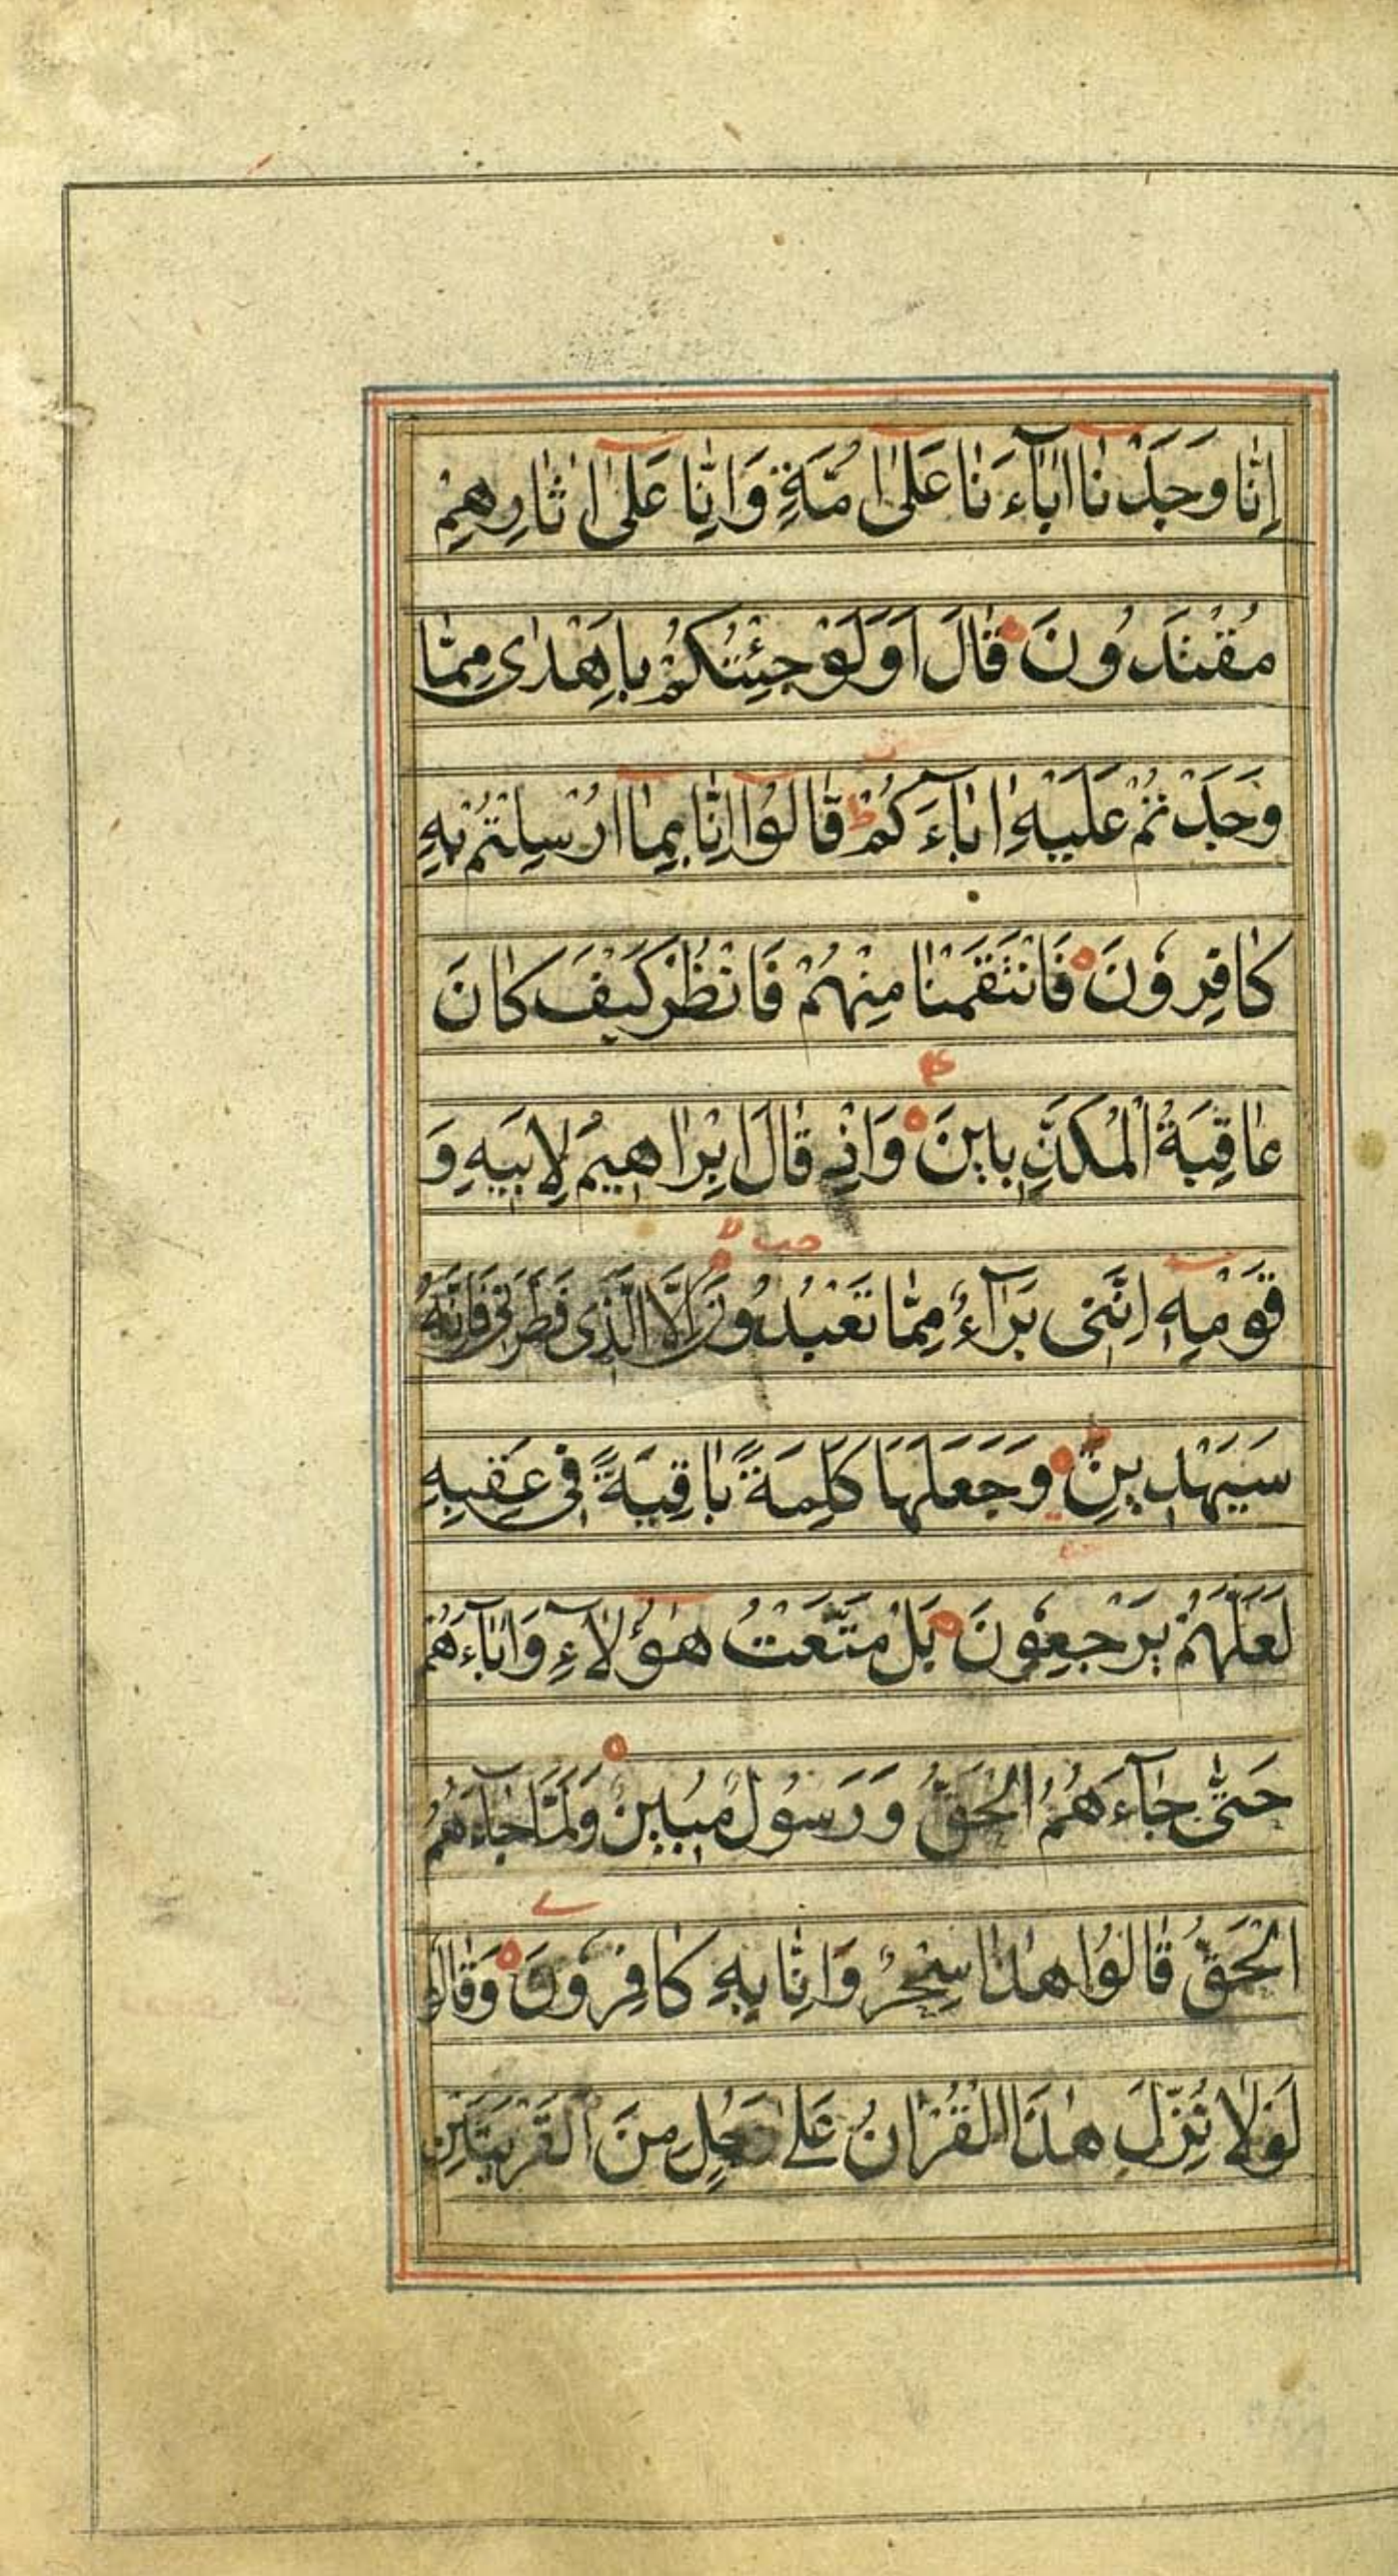 اِنّٰا وَجَدْنٰا اٰبٰآءَنٰا عَلٰٓى اُمَّةٍ وَاِنّٰا عَلٰٓى اٰثٰارِهِمْ
مُقْتَدُونَ ۝ قٰالَ اَوَلَوْ جِئْتُكُمْ بِاَهْدٰى مِمّٰا
وَجَدْتُمْ عَلَيْهِ اٰبٰآءَكُمْ ط قٰالُوٓا اِنّٰا بِمٰٓا اُرْسِلْتُمْ بِهِ
كٰافِرُونَ ۝ فَانْتَقَمْنٰا مِنْهُمْ فَانْظُرْ كَيْفَ كٰانَ
عٰاقِبَةُ الْمُكَذِّبِينَ ۝ وَاِذْ قٰالَ اِبْرٰاهِيمُ لِاَبِيهِ وَ
قَوْمِهِ اِنَّنِى بَرَآءٌ مِمّٰا تَعْبُدُونَ ۝ اِلَّا الَّذِى فَطَرَنِى فَاِنَّهُ
سَيَهْدِينِ ۝ وَجَعَلَهَا كَلِمَةً بٰاقِيَةً فِى عَقِبِهِ
لَعَلَّهُمْ يَرْجِعُونَ ۝ بَلْ مَتَّعْتُ هٰٓؤُلٰآءِ وَاٰبٰآءَهُمْ
حَتّٰى جٰآءَهُمُ الْحَقُّ وَرَسُولٌ مُبِينٌ ۝ وَلَمّٰا جٰآءَهُمُ
الْحَقُّ قٰالُوا هٰذٰا سِحْرٌ وَاِنّٰا بِهِ كٰافِرُونَ ۝ وَقٰالُوا
لَوْلٰا نُزِّلَ هٰذَا الْقُرْاٰنُ عَلٰى رَجُلٍ مِنَ الْقَرْيَتَيْنِ